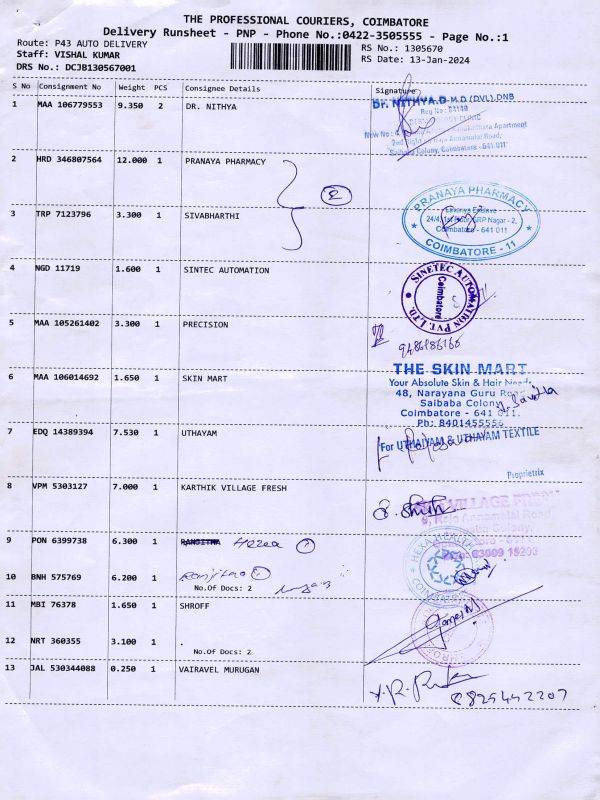 THE PROFESSIONAL COURIERS, COIMBATORE
Delivery Runsheet - PNP - Phone No.:0422-3505555 - Page No.:1
Route: P43 AUTO DELIVERY
Staff: VISHAL KUMAR
DRS No.: DCJB130567001
RS No.: 1305670
RS Date: 13-Jan-2024
S No Consignment No Weight PCS Consignee Details Signature
1 MAA 106779553 9.350 2 DR. NITHYA
Dr. NITHYA.D M.D.(DVL).,DNB
Apartment
Saibaba Colony, Coimbatore - 641 011
2 HRD 346807564 12.000 1 PRANAYA PHARMACY
2
PRANAYA PHARMACY
SRP Nagar - 2,
Coimbatore - 641 011
COIMBATORE - 11
3 TRP 7123796 3.300 1 SIVABHARTHI
4 NGD 11719 1.600 1 SINTEC AUTOMATION
SINETEC AUTOMATION PVT. LTD.
Coimbatore
5 MAA 105261402 3.300 1 PRECISION
9486186166
6 MAA 106014692 1.650 1 SKIN MART
THE SKIN MART
Your Absolute Skin & Hair Needs
48, Narayana Guru Road
Saibaba Colony
Coimbatore - 641 011.
Ph: 8401455556
7 EDQ 14389394 7.530 1 UTHAYAM
For UTHAIYAM & UTHAYAM TEXTILE
Proprietrix
8 VPM 5303127 7.000 1 KARTHIK VILLAGE FRESH
VILLAGE FRESH
Annamalai Road
Colony,
9 PON 6399738 6.300 1 RANGITHA
HEXA HEALTH
COIMBATORE
10 BNH 575769 6.200 1 Ranjitha
No.Of Docs: 2
11 MBI 76378 1.650 1 SHROFF
12 NRT 360355 3.100 1
No.Of Docs: 2
13 JAL 530344088 0.250 1 VAIRAVEL MURUGAN